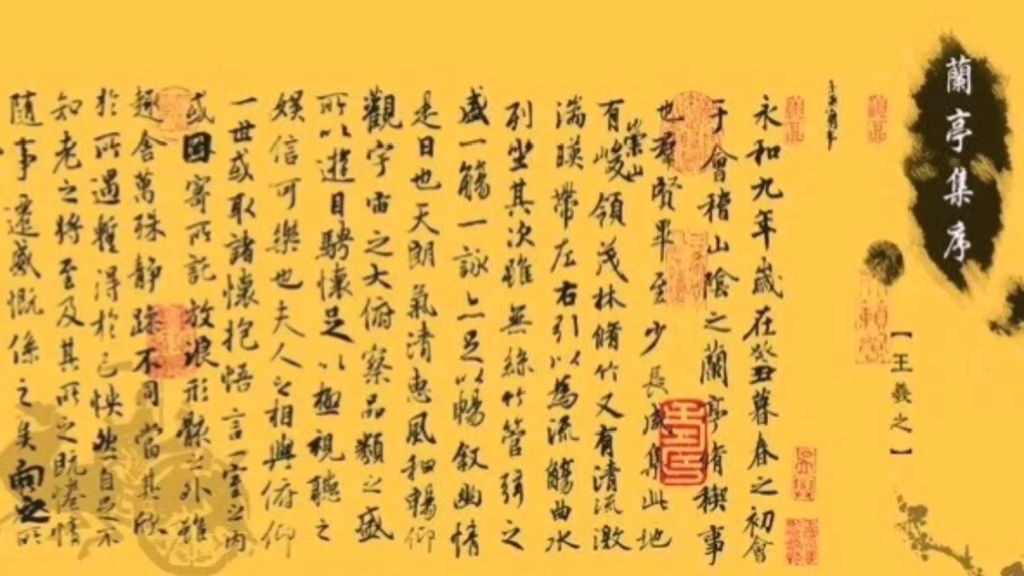 蘭亭集序
【王羲之】
永和九年歲在癸丑暮春之初會
于會稽山陰之蘭亭脩稧事
也羣賢畢至少長咸集此地
有崇山峻領茂林脩竹又有清流激
湍暎帶左右引以為流觴曲水
列坐其次雖無絲竹管弦之
盛一觴一詠亦足以暢敘幽情
是日也天朗氣清惠風和暢仰
觀宇宙之大俯察品類之盛
所以遊目騁懷足以極視聽之
娛信可樂也夫人之相與俯仰
一世或取諸懷抱悟言一室之內
或因寄所託放浪形骸之外雖
趣舍萬殊靜躁不同當其欣
於所遇暫得於己怏然自足不
知老之將至及其所之既惓情
隨事遷感慨係之矣向之所